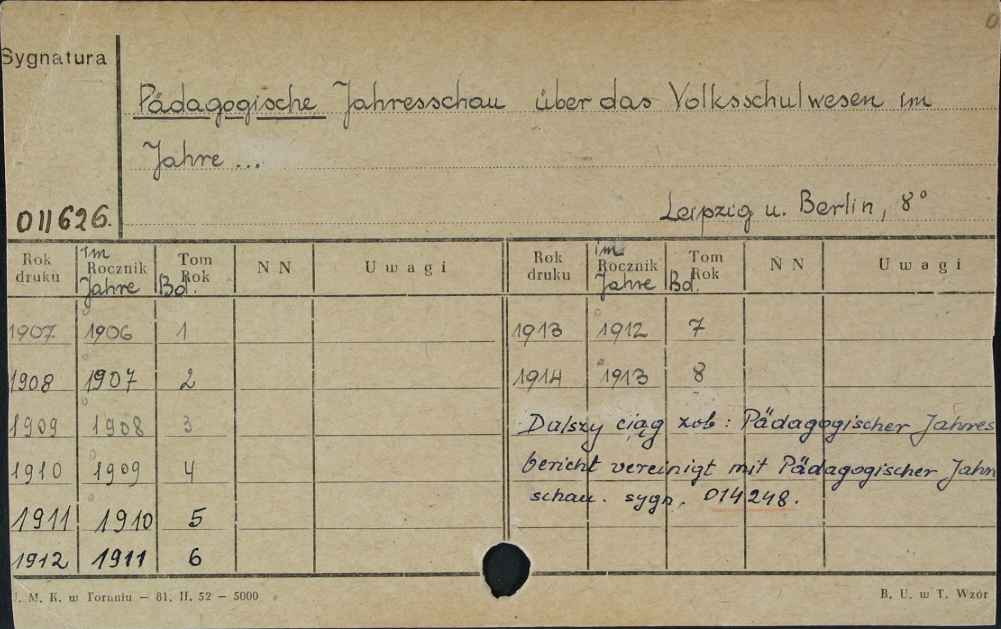 Sygnatura
Pädagogische Jahresschau über das Volksschulwesen im
Jahre ...
011626.
Leipzig u. Berlin, 8°
Rok druku | im Rocznik Jahre | Tom Rok Bd. | N N | Uwagi | Rok druku | im Rocznik Jahre | Tom Rok Bd. | N N | Uwagi
1907 1906 1 1913 1912 7
1908 1907 2 1914 1913 8
1909 1908 3 Dalszy ciąg zob: Pädagogischer Jahres
1910 1909 4 bericht vereinigt mit Pädagogischer Jahr
schau. sygn. 014248.
1911 1910 5
1912 1911 6
M. K. w Toruniu — 81. II. 52 — 5000
B. U. w T. Wzór